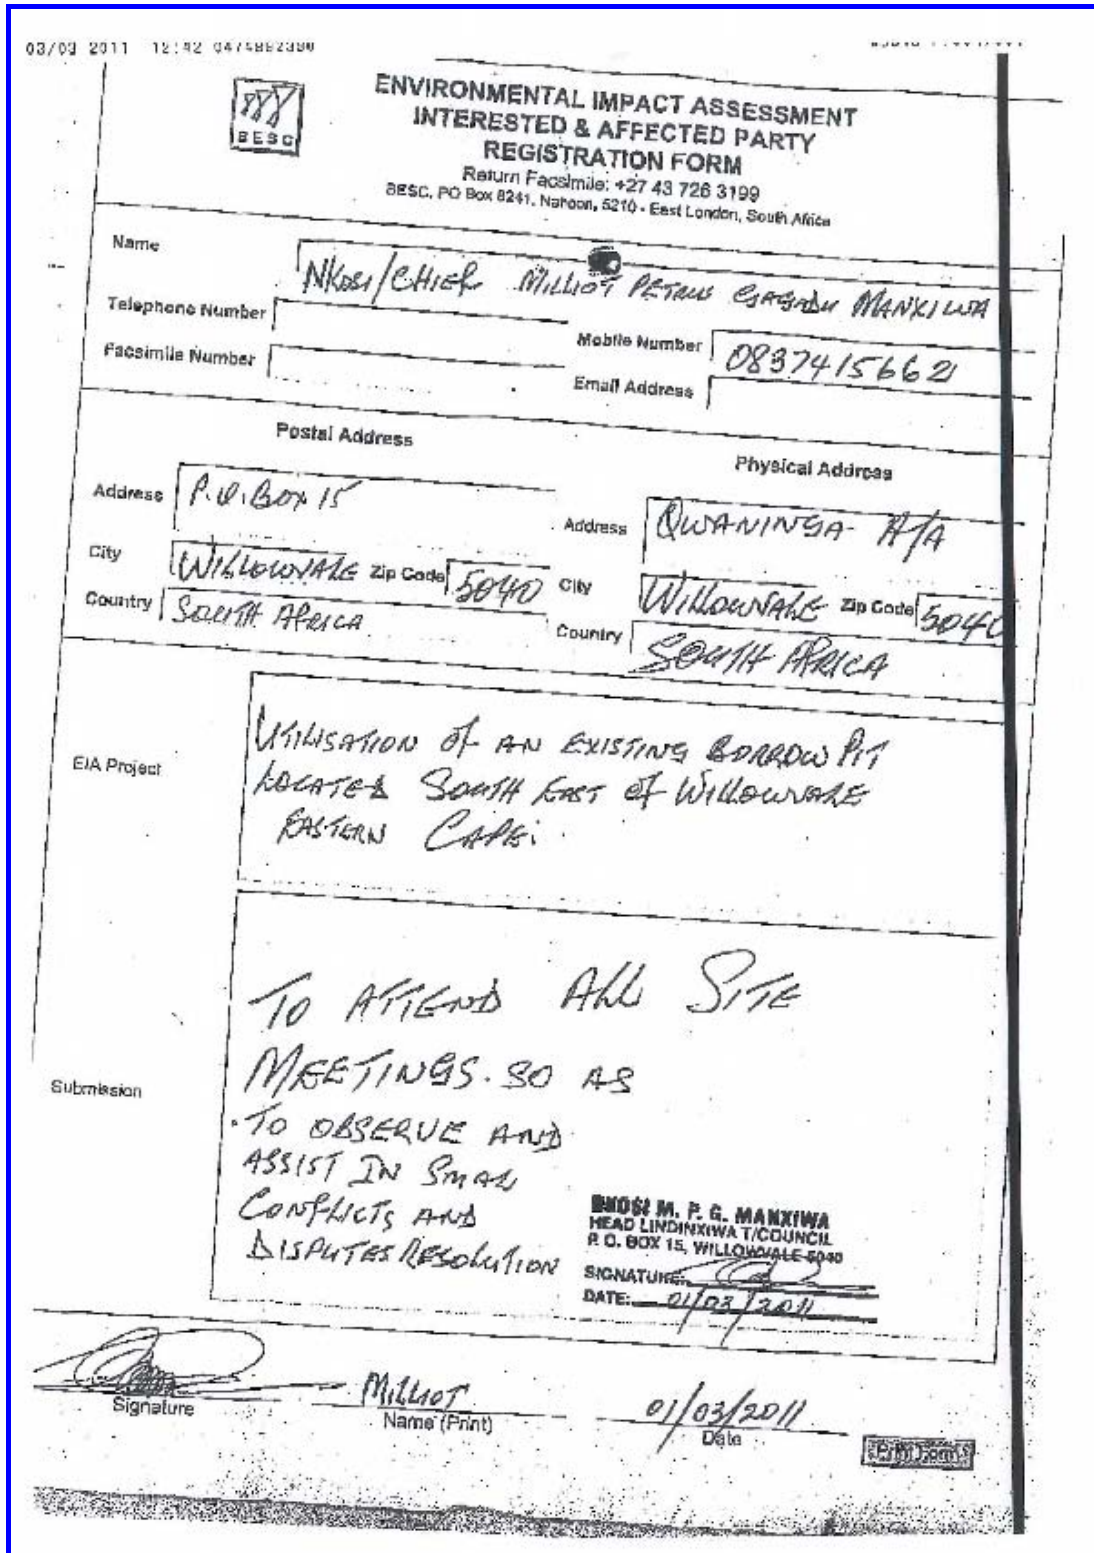 03/03 2011 12:42 0474992380
BESC
ENVIRONMENTAL IMPACT ASSESSMENT
INTERESTED & AFFECTED PARTY
REGISTRATION FORM
Return Facsimile: +27 43 726 3199
BESC, PO Box 8241, Nahoon, 5210 - East London, South Africa
Name
NKOSI/CHIEF MILLIOT PETRUS MANXIWA
Telephone Number
Mobile Number 0837415662
Facsimile Number
Email Address
Postal Address
Physical Address
Address P.O. BOX 15
Address QWANINGA A/A
City WILLOWVALE Zip Code 5040
City WILLOWVALE Zip Code 5040
Country SOUTH AFRICA
Country SOUTH AFRICA
EIA Project
UTILISATION OF AN EXISTING BORROW PIT
LOCATED SOUTH EAST OF WILLOWVALE
EASTERN CAPE.
Submission
TO ATTEND ALL SITE
MEETINGS. SO AS
TO OBSERVE AND
ASSIST IN SMAL
CONFLICTS AND
DISPUTES RESOLUTION
NKOSI M. P. G. MANXIWA
HEAD LINDINXIWA T/COUNCIL
P. O. BOX 15, WILLOWVALE 5040
SIGNATURE:
DATE: 01/03/2011
Signature
MILLIOT
Name (Print)
01/03/2011
Date
Print Form